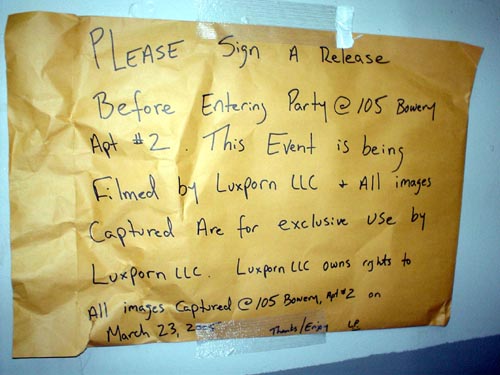 PLEASE Sign A Release
Before Entering Party @ 105 Bowery
Apt #2. This Event is being
Filmed by Luxporn LLC + All images
Captured Are for exclusive use by
Luxporn LLC. Luxporn LLC owns rghts to
All images Captured @ 105 Bowery, Apt #2 on
March 23,
Thanks/Enjoy LP